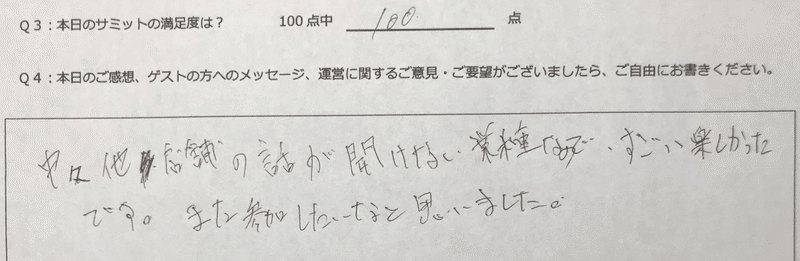 Q3：本日のサミットの満足度は？ 100点中 100 点
Q4：本日のご感想、ゲストの方へのメッセージ、運営に関するご意見・ご要望がございましたら、ご自由にお書きください。
中々他店舗の話が聞けない業種なので、すごい楽しかった
です。また参加したいなと思いました。